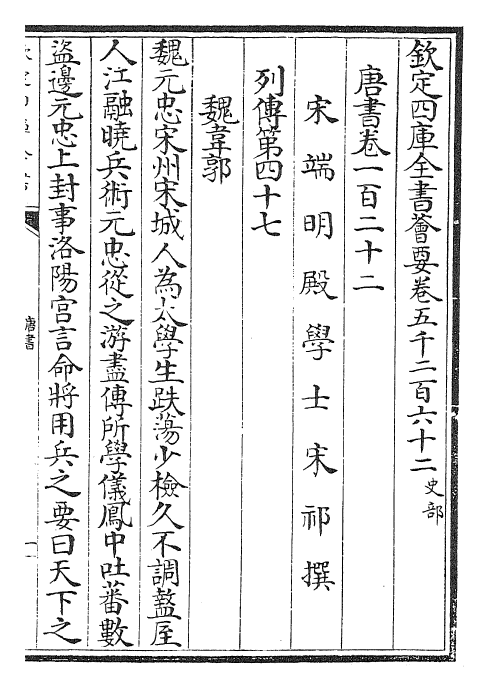 欽定四庫全書薈要卷五千二百六十二 史部
唐書卷一百二十二
宋端明殿學士宋祁撰
列傳第四十七
魏韋郭
魏元忠宋州宋城人為太學生跌蕩少檢久不調盩厔
人江融曉兵術元忠從之游盡傳所學儀鳳中吐蕃數
盜邊元忠上封事洛陽宮言命將用兵之要曰天下之
唐書